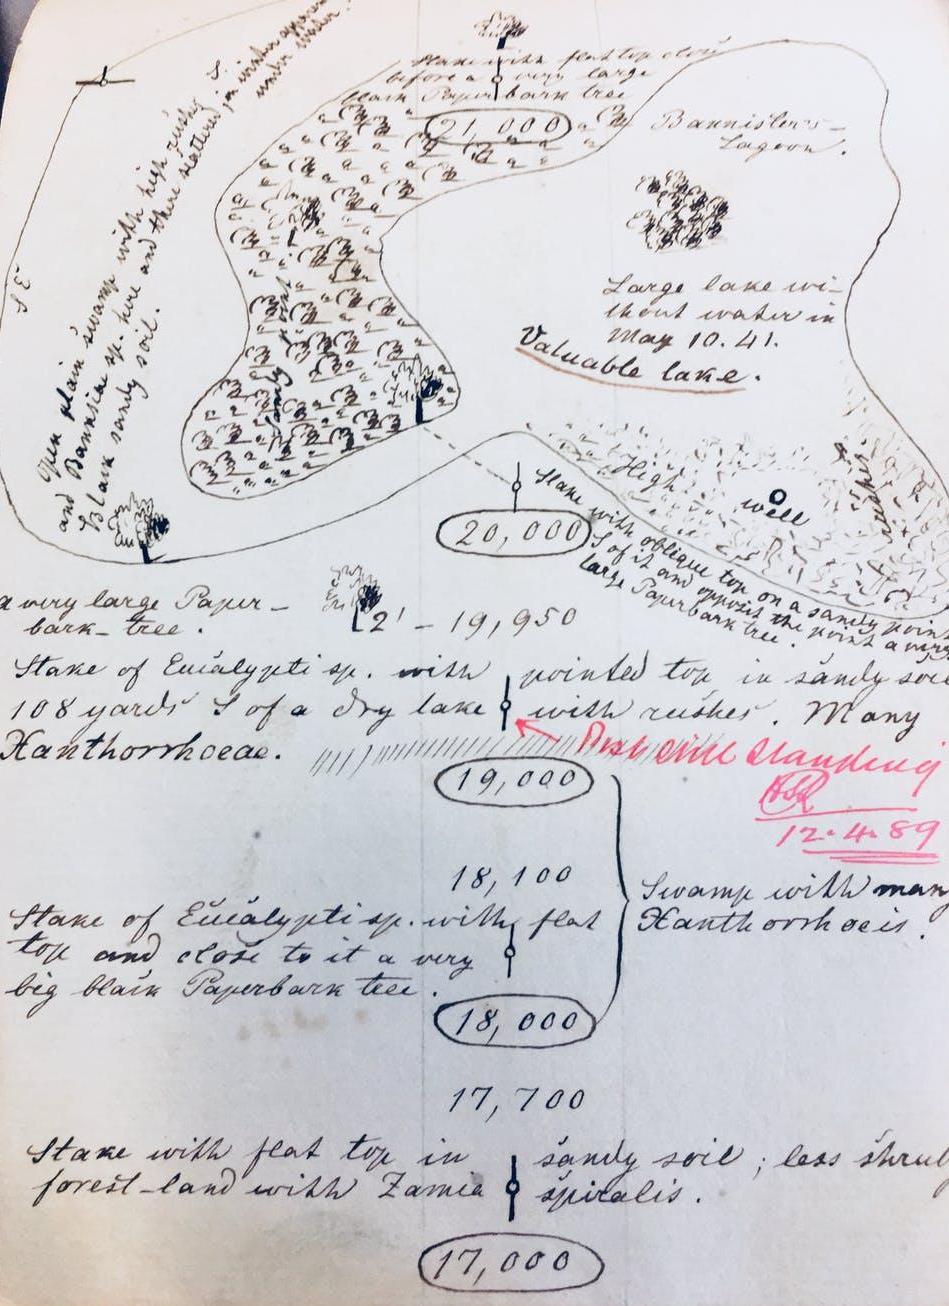 Stake with flat top close
before a very large
black Paperbark tree
21,000
Bannister's-
Lagoon.
Open plain swamp with high rushes
and Banksia sp. here and there scattered, in winter appears
under water.
Black sandy soil.
S.
S E
sandy point
Large lake wi-
thout water in
May 10. 41.
Valuable lake.
High
rushes
well
20,000
Stake with oblique top on a sandy point
S of it and opposit the point a very
large Paperbark tree.
a very large Paper-
bark-tree.
2' - 19,950
Stake of Eucalypti sp. with pointed top in sandy soil
108 yards S of a dry lake with rushes. Many
Xanthorrhoeae.
Post still standing
12.4.89
19,000
18,100
Swamp with many
Xanthorrhoeis.
Stake of Eucalypti sp. with flat
top and close to it a very
big black Paperbark tree.
18,000
17,700
Stake with flat top in sandy soil; less shrub
forest-land with Zamia spiralis.
17,000